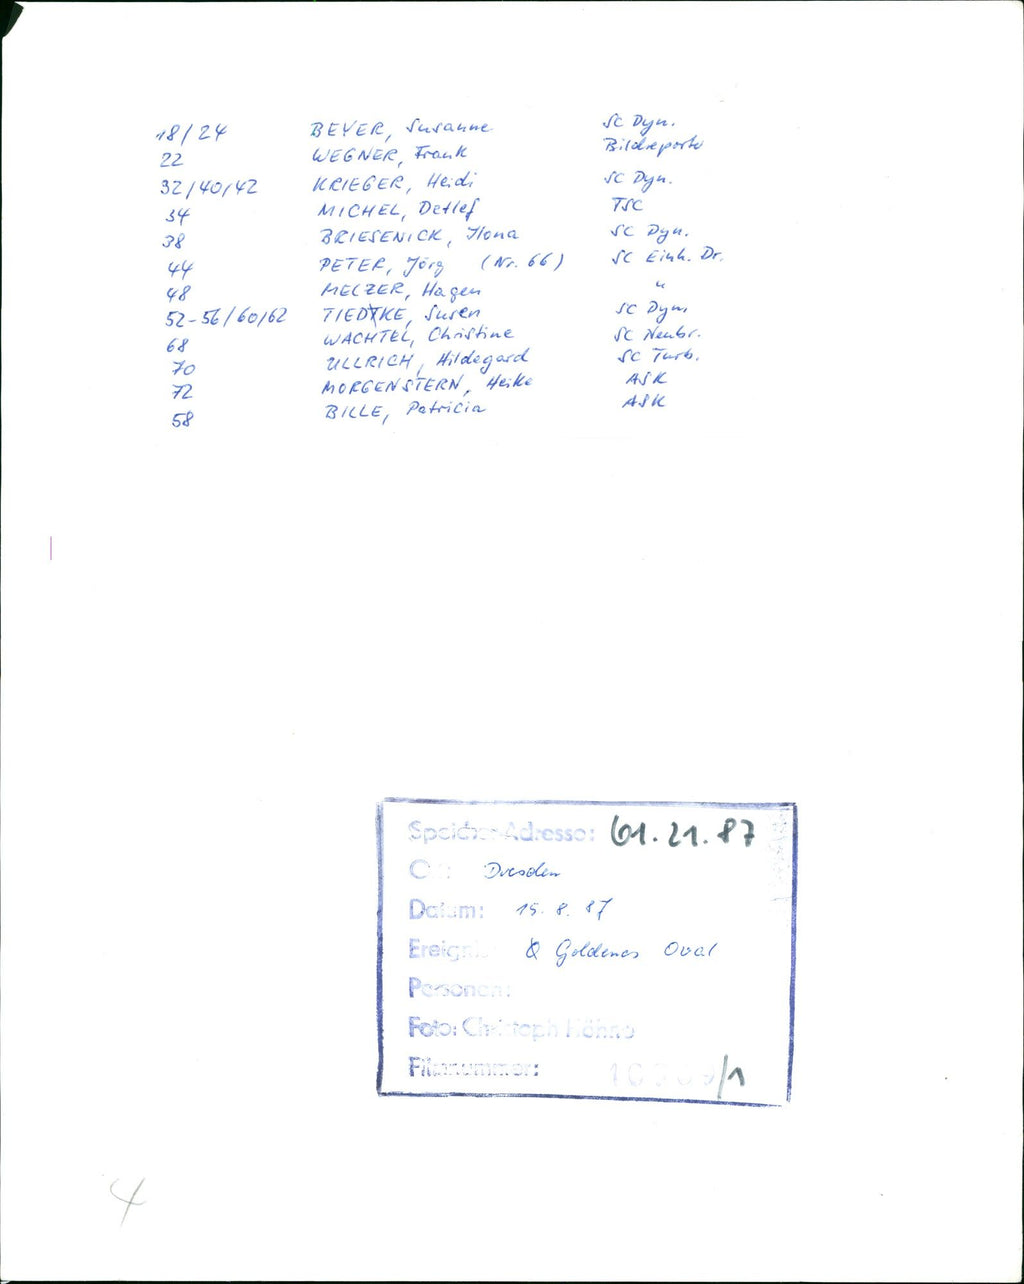 18/24 BEYER, Susanne SC Dyn.
22 WEGNER, Frank Bildreporter
32/40/42 KRIEGER, Heidi SC Dyn.
34 MICHEL, Detlef TSC
38 BRIESENICK, Ilona SC Dyn.
44 PETER, Jörg (Nr. 66) SC Einh. Dr.
48 MELZER, Hagen "
52-56/60/62 TIEDTKE, Susen SC Dym
68 WACHTEL, Christine SC Neubr.
70 ULLRICH, Hildegard SC Turb.
72 MORGENSTERN, Heike ASK
58 BILLE, Patricia ASK
Speicher-Adresse: 61.21.87
Dresden
Datum: 15. 8. 87
Ereignis: Goldenes Oval
Personen:
Foto: Christoph Höhne
Filmnummer: /1
4